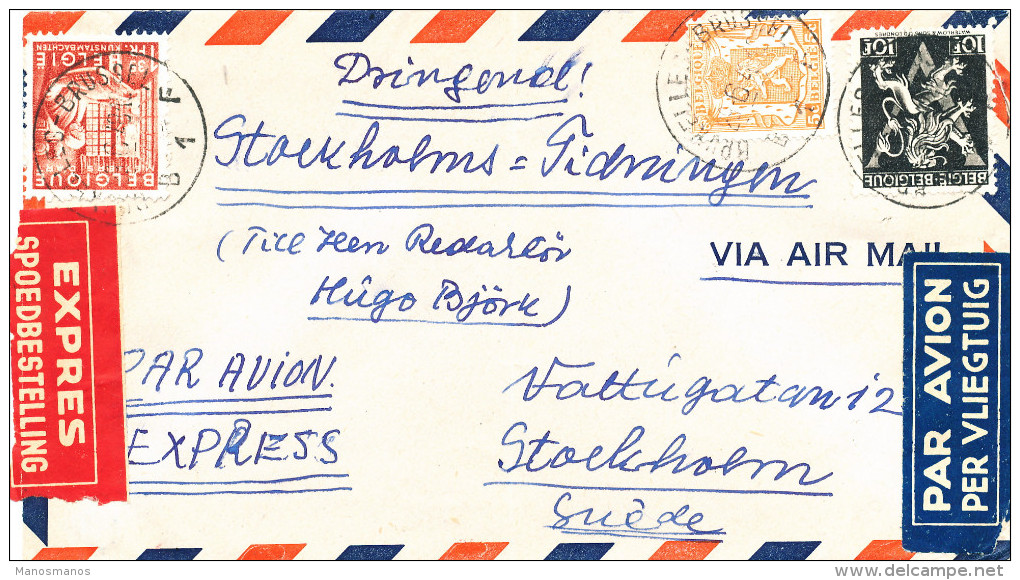 Dringend!
Stockholms=Tidningen
(Till Herr Redaktör
Hûgo Björk)
VIA AIR MAIL
PAR AVION.
EXPRESS
Vattûgatan 12
Stockholm
Suède
EXPRES
SPOEDBESTELLING
PAR AVION
PER VLIEGTUIG
1 FR. KUNSTAMBACHTEN
BELGIË
BELGIQUE
BRUSSEL
1 F
BELGIQUE
BELGIE
10F 10F
BELGIE-BELGIQUE
Manosmanos
delcampe.net